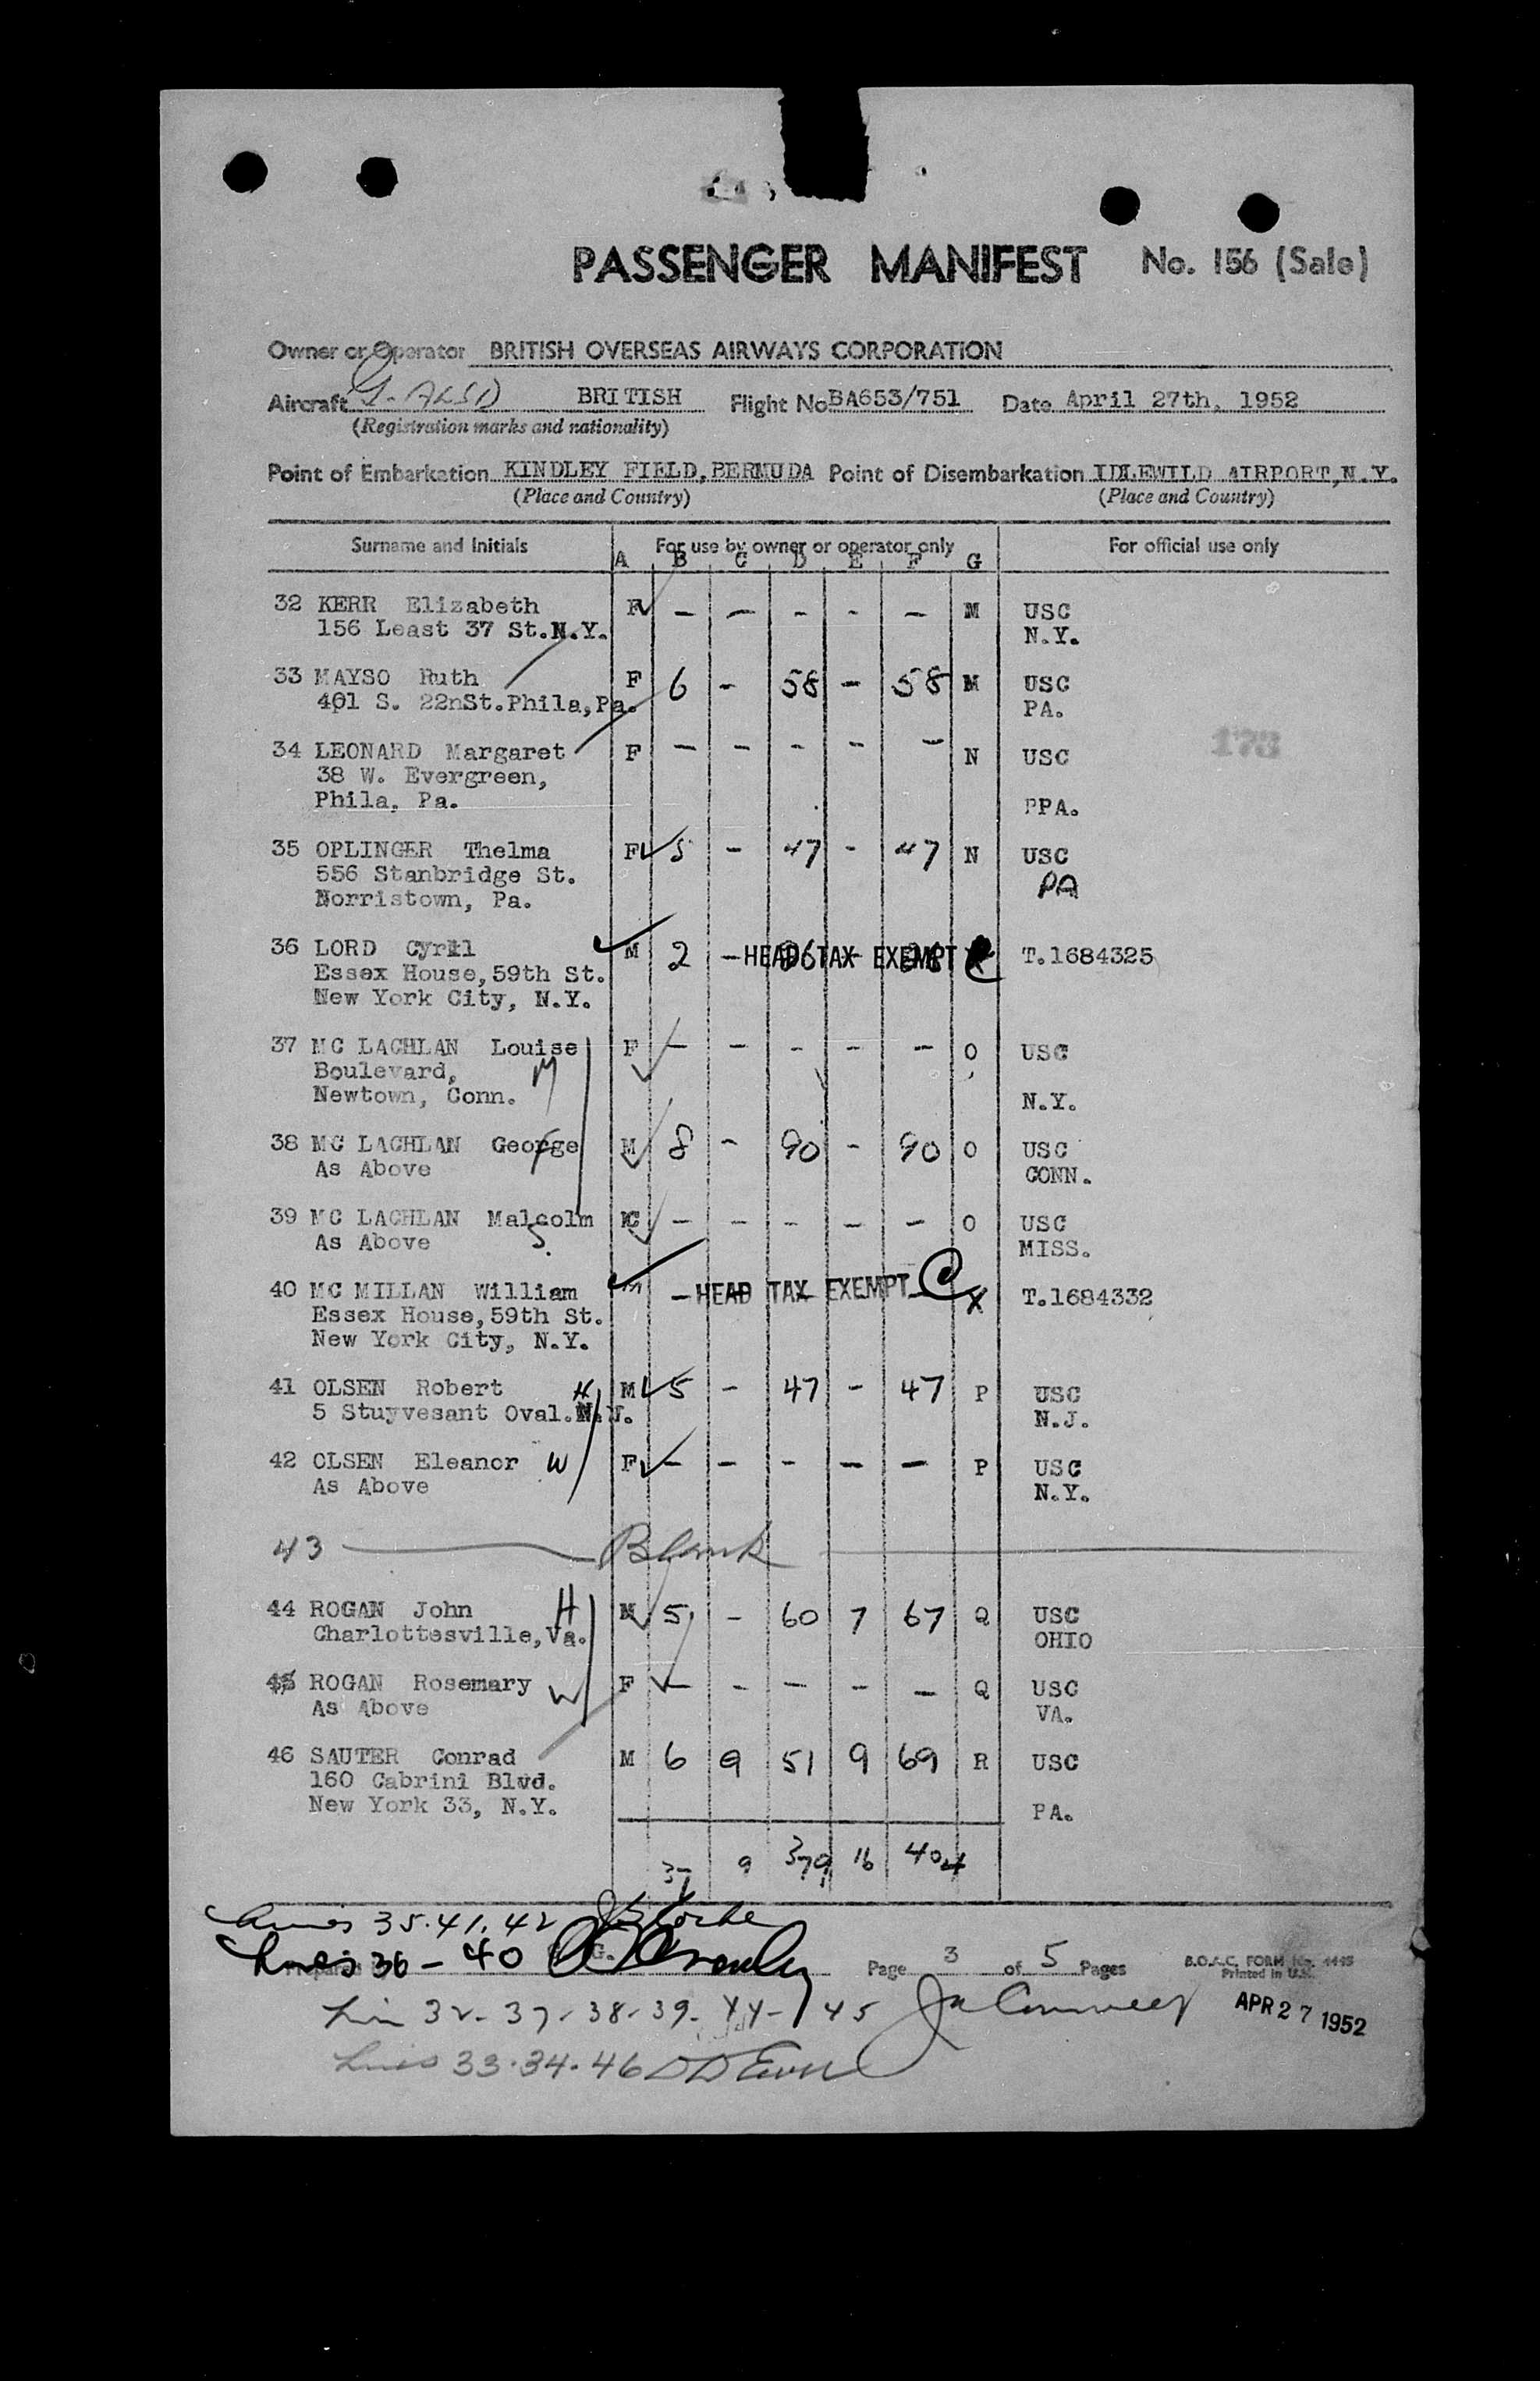 PASSENGER MANIFEST No. 156 (Sale)
Owner or Operator BRITISH OVERSEAS AIRWAYS CORPORATION
Aircraft G-ALSD BRITISH Flight No BA653/751 Date April 27th, 1952
(Registration marks and nationality)
Point of Embarkation KINDLEY FIELD, BERMUDA Point of Disembarkation IDLEWILD AIRPORT, N.Y.
(Place and Country) (Place and Country)
Surname and Initials For use by owner or operator only For official use only
A B C D E F G
32 KERR Elizabeth F - - - - - M USC
156 Least 37 St.N.Y. N.Y.
33 MAYSO Ruth F 6 - 58 - 58 M USC
401 S. 22nSt.Phila,Pa. PA.
34 LEONARD Margaret F - - - - - N USC
38 W. Evergreen,
Phila, Pa. PPA.
173
35 OPLINGER Thelma F 5 - 47 - 47 N USC
556 Stanbridge St. PA
Norristown, Pa.
36 LORD Cyril M 2 - HEAD TAX EXEMPT T.1684325
Essex House,59th St.
New York City, N.Y.
37 MC LACHLAN Louise F - - - - - O USC
Boulevard, M
Newtown, Conn. N.Y.
38 MC LACHLAN George M 8 - 90 - 90 O USC
As Above F CONN.
39 MC LACHLAN Malcolm - - - - - O USC
As Above S MISS.
40 MC MILLAN William M - HEAD TAX EXEMPT X T.1684332
Essex House,59th St.
New York City, N.Y.
41 OLSEN Robert H M 5 - 47 - 47 P USC
5 Stuyvesant Oval.N.J. N.J.
42 OLSEN Eleanor W F - - - - - P USC
As Above N.Y.
43 Blank
44 ROGAN John H M 5 - 60 7 67 Q USC
Charlottesville,Va. OHIO
45 ROGAN Rosemary W F - - - - - Q USC
As Above VA.
46 SAUTER Conrad M 6 9 51 9 69 R USC
160 Cabrini Blvd.
New York 33, N.Y. PA.
37 9 379 16 404
Lines 35.41.42
Lines 36-40
Page 3 of 5 Pages B.O.A.C. FORM No. 4445
Printed in U.K.
Lin 32-37-38-39-44-45
APR 27 1952
Lines 33.34.46